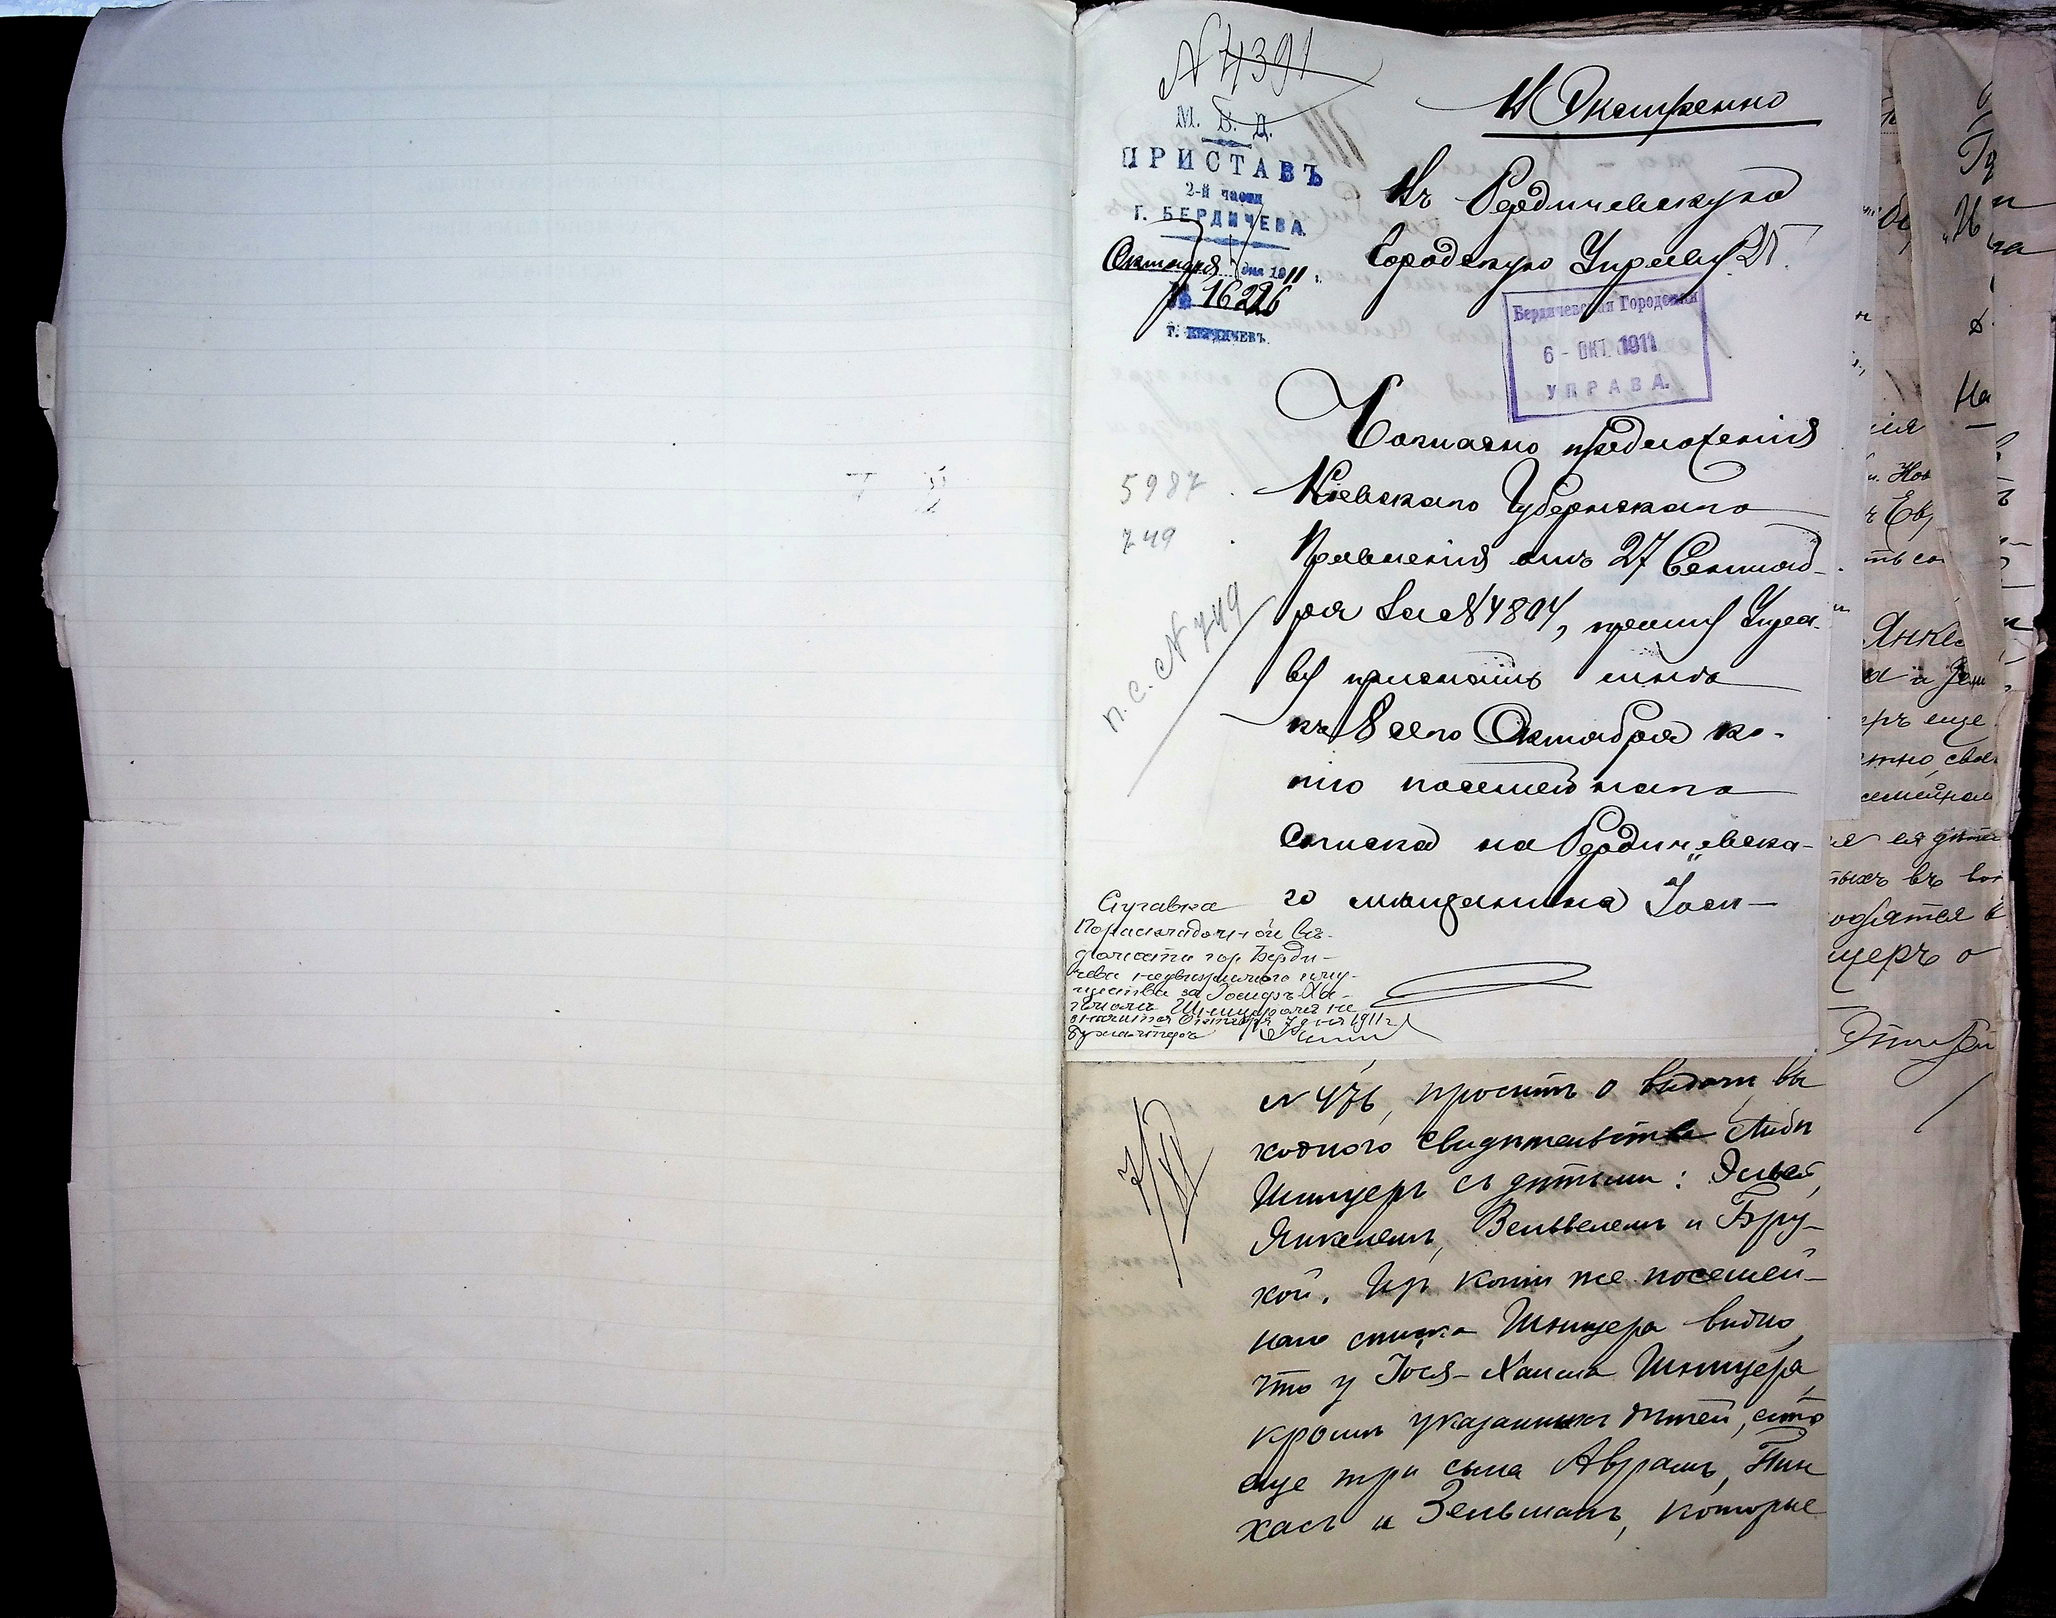 N 4391
М. В. Д.
ПРИСТАВЪ
2-й части
Г. БЕРДИЧЕВА.
Октября дня 1911 г.
№ 16226
Г. БЕРДИЧЕВЪ.
Экстренно
Въ Бердичевскую
Городскую Управу
Бердичевская Городская
6 - ОКТ. 1911
УПРАВА.
Согласно предложенія
Кіевскаго Губернскаго
Правленія отъ 27 Сентяб-
ря за N 4804, прошу Упра-
ву прислать мнѣ
къ 8 сего Октября ко-
пію посемейнаго
списка на Бердичевска-
го мѣщанина Іоси-
5987
749
п. с. N 749
Справка
По раскладочной вѣ-
домости гор. Берди-
чева недвижимаго иму-
щества за Іосифъ-Ха-
имомъ Шницеромъ не
значится Октября 7 дня 1911 г.
Бухгалтеръ
N 476, просить о выдачи вы
ходного свидѣтельства Либы
Шницеръ съ дѣтьми: Эльей,
Янкелемъ, Вельвелемъ и Бру-
хой. Изъ копіи же посемей-
наго списка Шницера видно,
что у Іося-Хаима Шницера,
кромѣ указанныхъ дѣтей, есть
еще три сына Аврамъ, Пин
хасъ и Зельманъ, которые